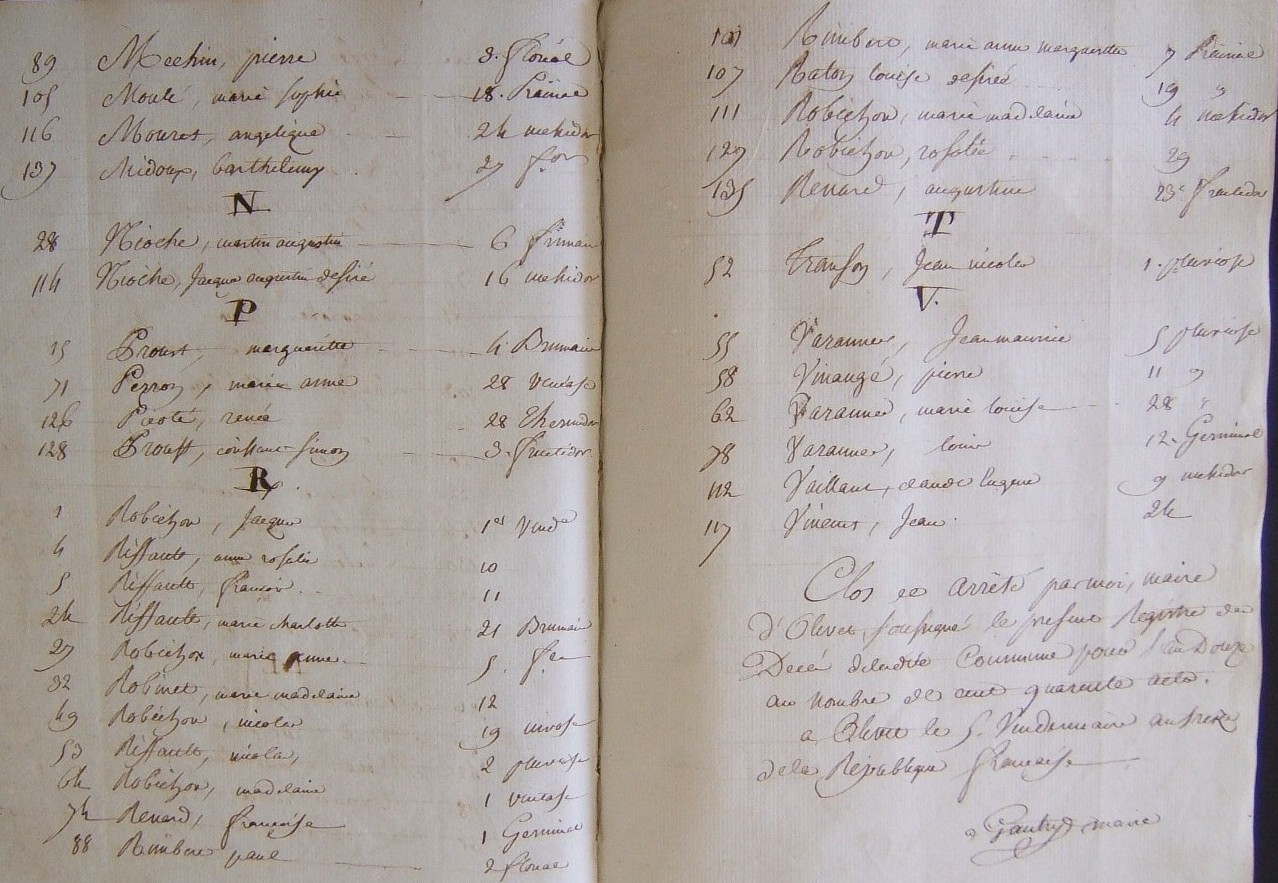 89 Mechin, pierre 3. floréal
105 Moulé, marie sophie 18. Prairial
116 Mouret, angelique 24 messidor
137 Midoux, barthelemy 27 f.or
N
28 Nioche, martin augustin 6 frimaire
114 Nioche, Jacque augustin desiré 16 messidor
P
15 Proust, margueritte 4 Brumaire
71 Perron, marie anne 28 ventose
126 Picoté, renée 28 thermidor
128 Proust, constant simon 3. fructidor
R
1 Robichon, Jacque 1er vend.e
4 Riffault, anne rosalie 10
5 Riffault, françois 11
24 Riffault, marie charlotte 21 Brumaire
27 Robichon, marie anne 5.
32 Robinet, marie madelaine 12
49 Robichon, nicolas 19 nivose
53 Riffault, nicolas, 2 pluviose
64 Robichon, madelaine 1 ventose
74 Renard, françoise 1 Germinal
88 Rimbert paul 2 floréal
101 Rimbert, marie anne margueritte 7 Prairial
107 Raton louise desirée 19 "
111 Robichon, marie madelaine 4 messidor
129 Robichon, rosalie 29
135 Renard, augustine 23e fructidor
T
52 Transon, Jean nicolas 1. pluviose
V.
55 Varanne, Jean maurice 5 pluviose
58 Vinangé, pierre 11 "
62 Varanne, marie louise 28 "
78 Varanne, louis 12. Germinal
112 Vaillant, claude Eugene 9 messidor
117 Vincent, Jean. 24
Clos et arrêté par moi, maire
d'Olivet, soussigné le present Registre des
Décés deladite Commune pour l'an Douze
au nombre de cent quarente actes.
a Olivet le 5. Vindemiaire an treize
dela République française
Gautry maire